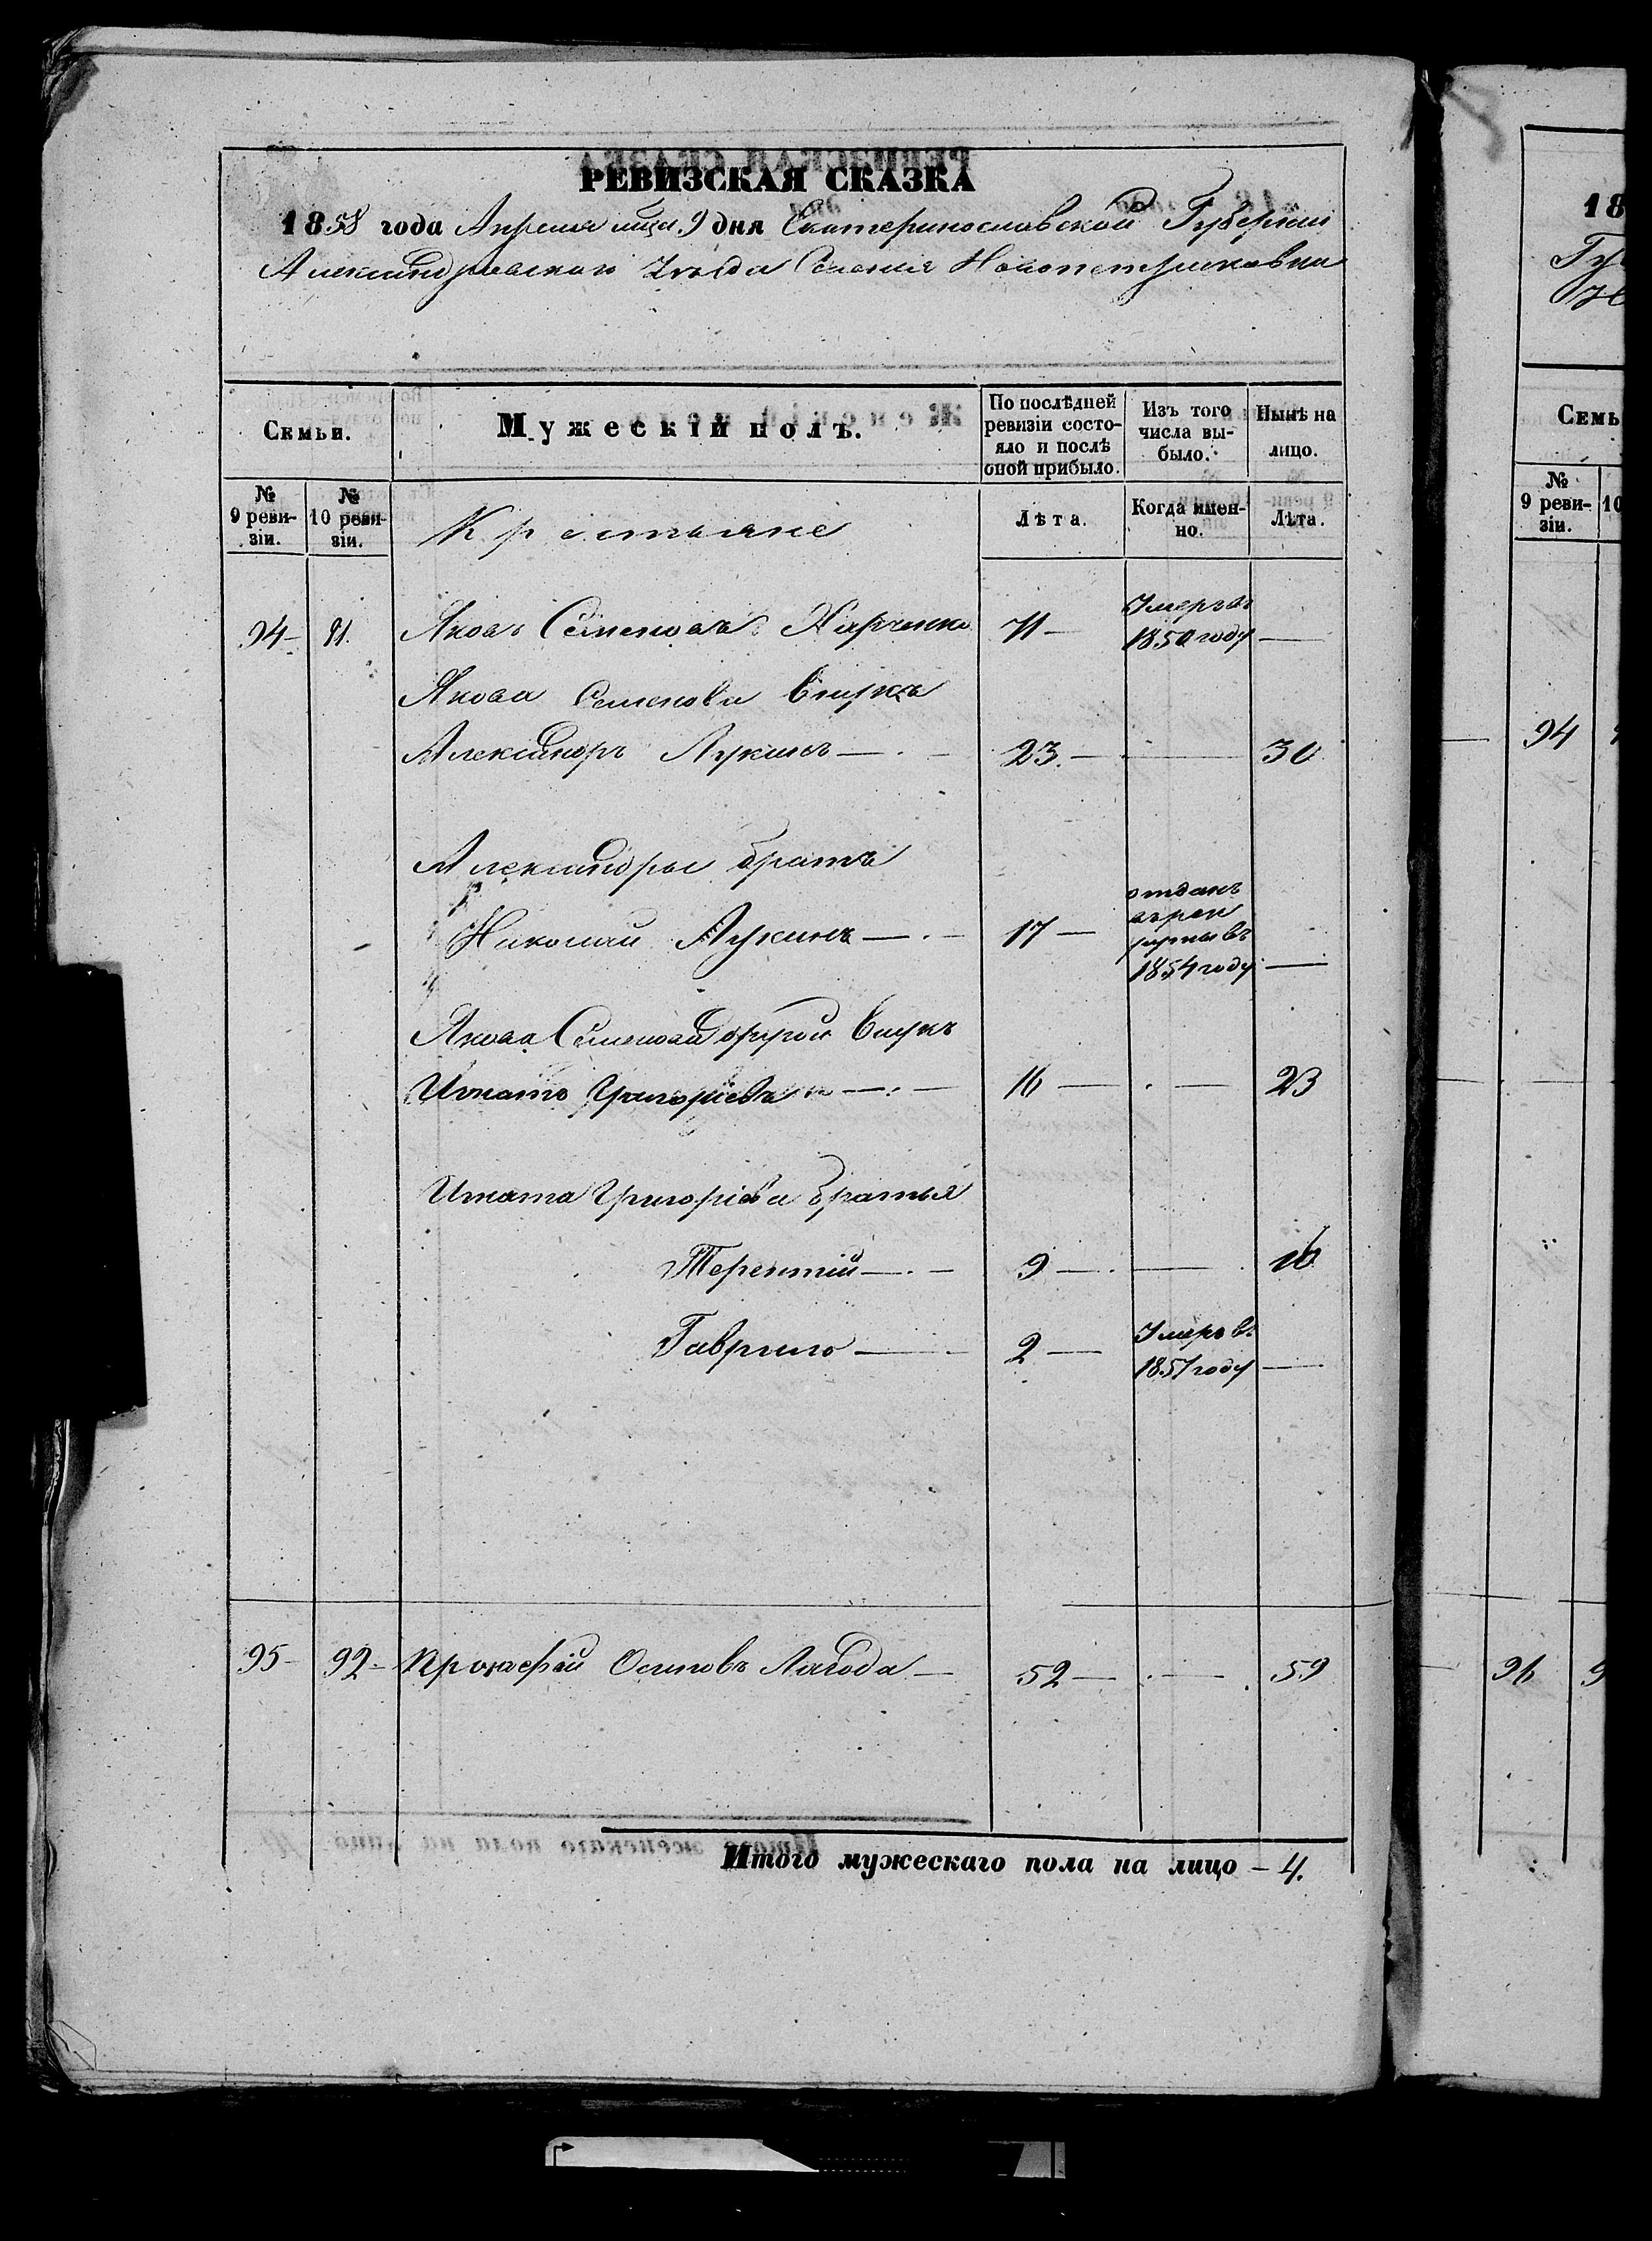 РЕВИЗСКАЯ СКАЗКА
1858 года Апреля мца 9 дня Екатеринославской Губернии
Александровскаго Уезда Селения Новопетриковка
Семьи.
Мужескій полъ.
По послѣдней ревизіи состояло и послѣ оной прибыло.
Изъ того числа выбыло.
Нынѣ на лицо.
№ 9 ревизіи.
№ 10 ревизіи.
Крестьяне
Лѣта.
Когда именно.
Лѣта.
94 91. Яковъ Семеновъ Харченко 71 Умеръ въ 1850 году
Якова Семенова внукъ
Александръ Лукинъ 23. 30
Александры братъ
Николай Лукинъ 17 отданъ въ рекруты въ 1854 году
Якова Семенова другой внукъ
Игнатъ Григорьевъ 16 23
Игната Григорьева братья
Терентій 9 16
Гаврило 2 Умеръ въ 1851 году
95 92 Прокофій Осиповъ Лагода 52 59
Итого мужескаго пола на лицо 4.
18
Гу
Семь
№ 9 ревизіи.
10
94
96 9